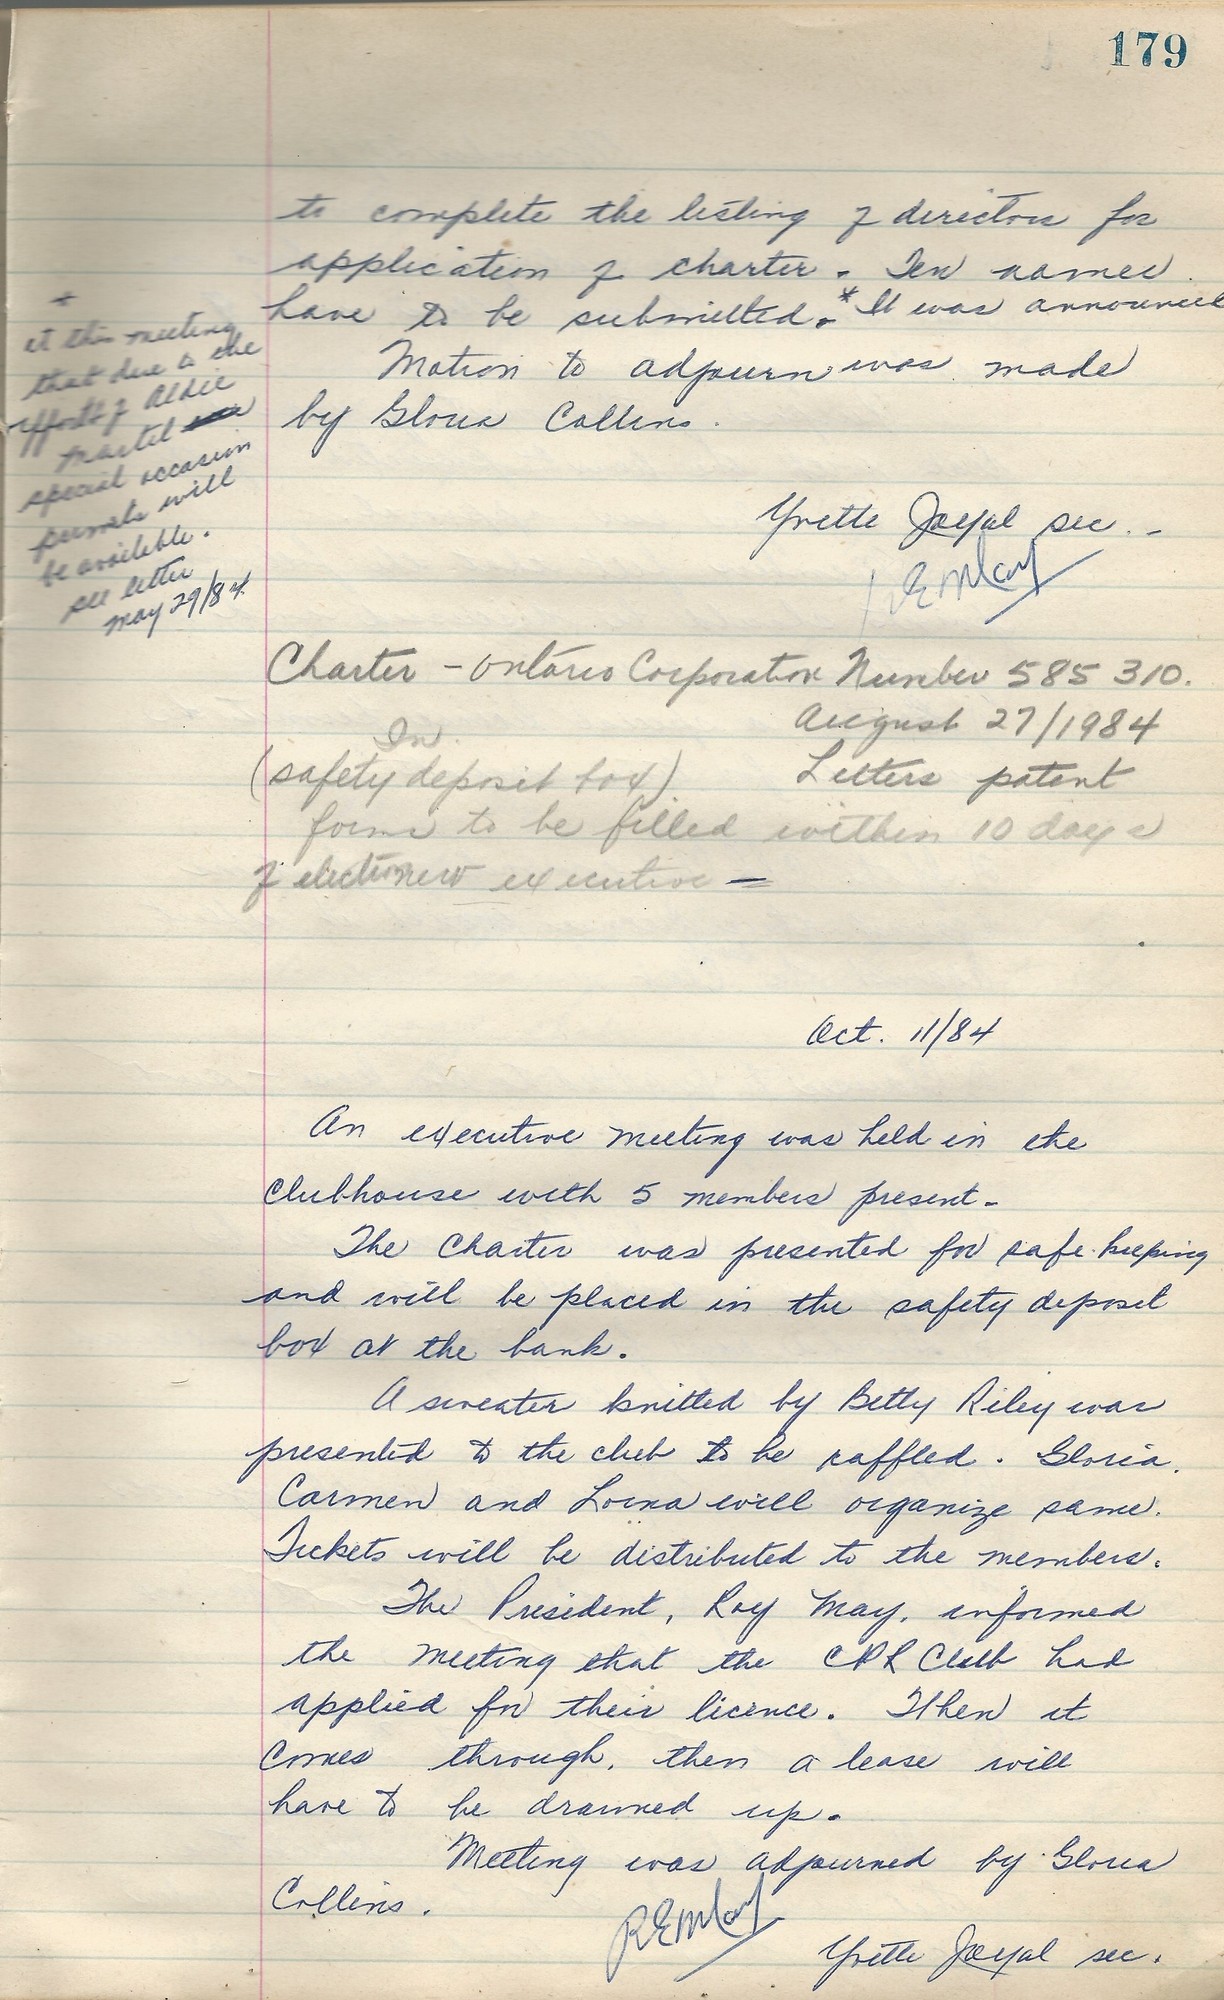 179
to complete the listing of directors for
application of charter. Ten names
have to be submitted.* It was announced
Motion to adjourn was made
by Gloria Collins.
*
at this meeting
that due to the
efforts of Aldie
Martel
special occasion
permits will
be available.
see letter
May 29/84.
Yvette Joyal sec. -
REMay
Charter - Ontario Corporation Number 585 310.
August 27/1984
In
(safety deposit box) Letters patent
forms to be filled within 10 days
of election new executive -
Oct. 11/84
An executive meeting was held in the
clubhouse with 5 members present.
The Charter was presented for safe-keeping
and will be placed in the safety deposit
box at the bank.
A sweater knitted by Betty Riley was
presented to the club to be raffled. Gloria,
Carmen and Lorna will organize same.
Tickets will be distributed to the members.
The President, Roy May, informed
the meeting that the CPR Club had
applied for their licence. When it
comes through, then a lease will
have to be drawned up.
Meeting was adjourned by Gloria
Collins.
REMay
Yvette Joyal sec.